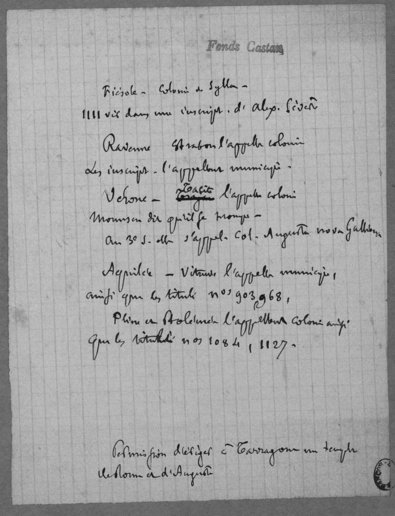 Fonds Castan
Fiésole - Colonie de Sylla -
IIII vir dans une inscript. d'Alex. Sévère
Ravenne Strabon l'appelle colonie
Les inscript. l'appellent municipe -
Vérone - Tacite l'appelle colonie
Mommsen dit qu'il se trompe -
Au 3e s. elle s'appelle Col. Augusta nova Gallieniana
Aquilée - Vitruve l'appelle municipe,
ainsi que les tituli nos 903, 968,
Pline et Ptolémée l'appellent colonie ainsi
que les tituli nos 1084, 1127.
Permission d'ériger à Tarragone un temple
de Rome et d'Auguste